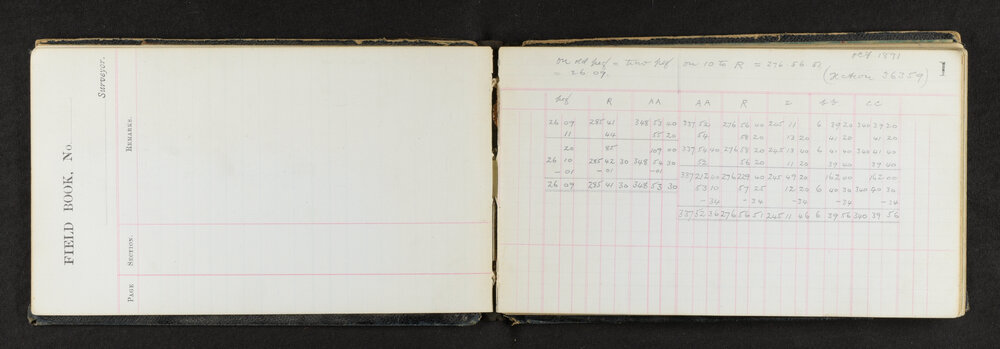 FIELD BOOK, No.
Surveyor.
PAGE SECTION REMARKS.
1
on old peg = two peg on 10 to R = 276.56.52
= 26.09.
peg R AA AA R CC
26 09 285 41 348 53 40 337 52 276 56 40 245 11 6 39 20 340 39 20
11 44 55 20 54 58 20 13 20 41 20 41 20
20 85 109 00 337 54 40 276 58 20 245 13 40 6 41 40 340 41 40
26 10 285 42 30 348 54 30 52 56 20 11 20 39 40 39 40
-01 -01 -01 337 212 00 276 229 40 245 49 20 162 00 162 00
26 09 285 41 30 348 53 30 53 10 57 25 12 20 6 40 30 340 40 30
-34 -34 -34 -34 -34
337 52 36 276 56 51 245 11 46 6 39 56 340 39 56